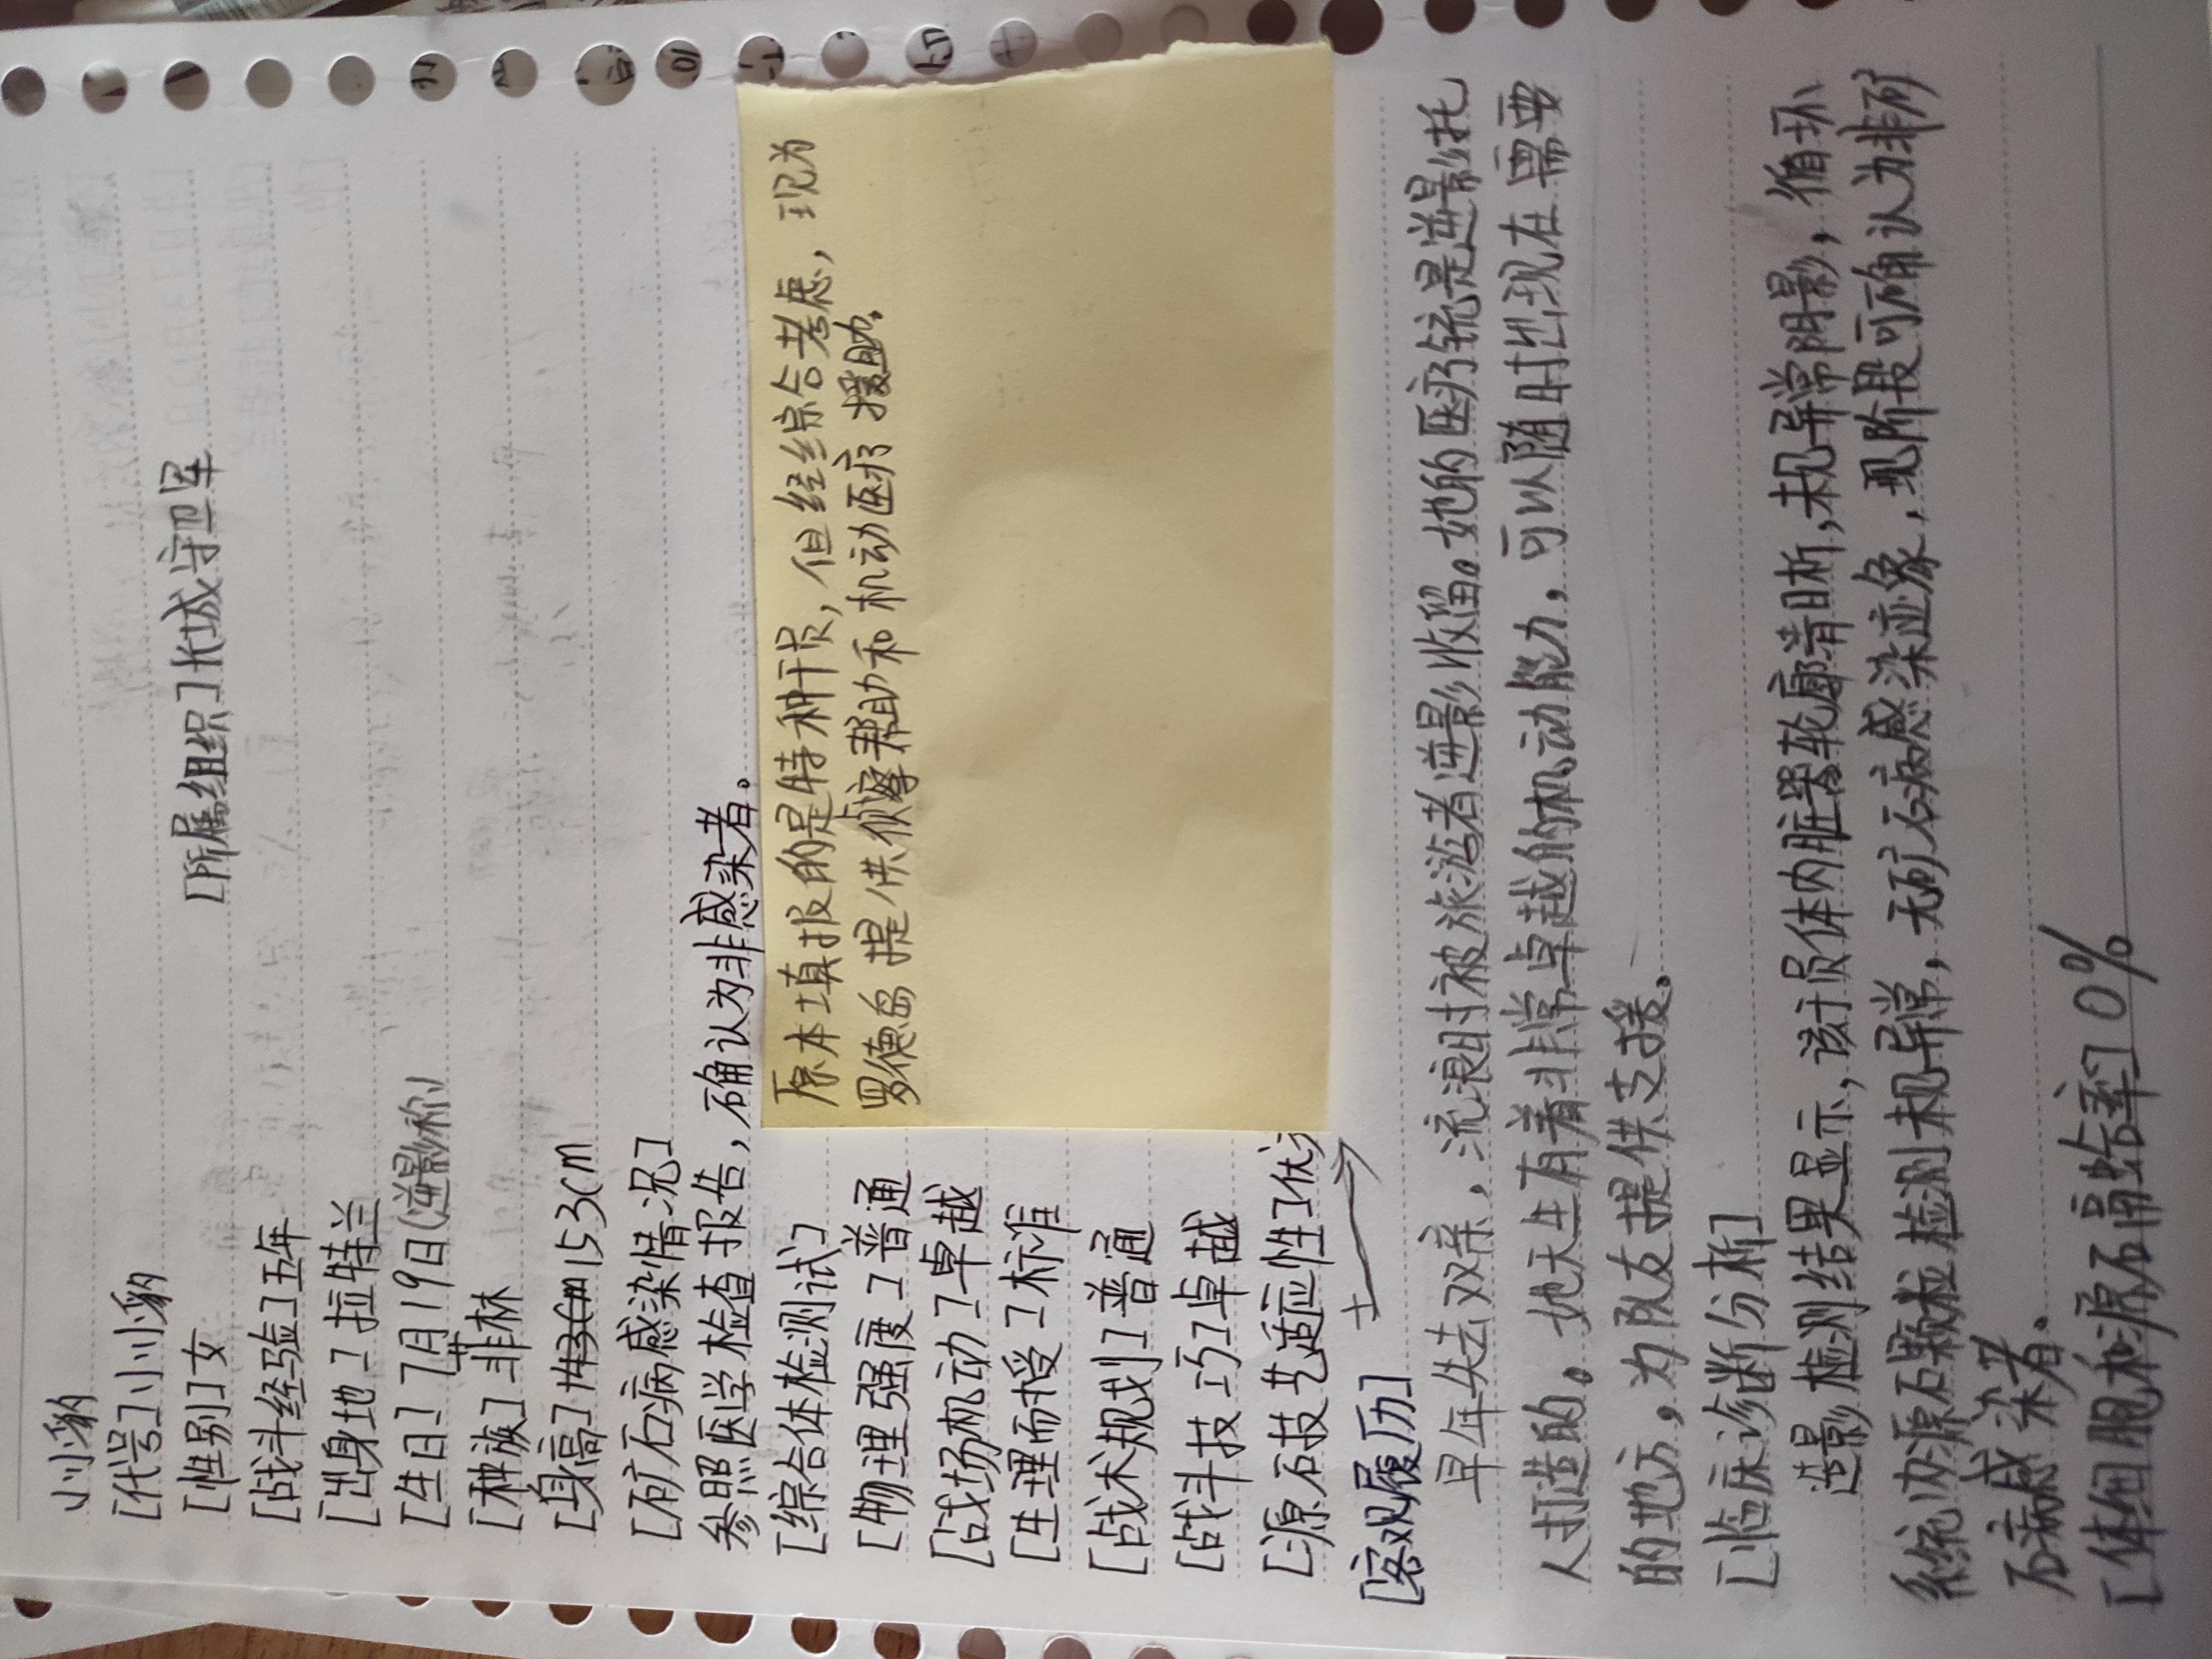 小小豹
[代号]小小豹
[所属组织]长城守卫军
[性别]女
[战斗经验]五年
[出身地]拉特兰
[生日]7月19日(逆影称)
[种族]菲林
[身高]153cm
[矿石病感染情况]
参照医学检查报告,确认为非感染者。
[综合体检测试]
[物理强度]普通
[战场机动]卓越
[生理耐授]标准
[战术规划]普通
[战斗技巧]卓越
[源石技艺适应性]优
原本填报的是特种干员,但经综合考虑,现为
罗德岛提供侦察帮助和机动医疗援助。
[客观履历]
早年失去双亲,流浪时被旅游者逆影收留。她的医疗铳是逆影托
人打造的。她天生有着非常卓越的机动能力,可以随时出现在需要
的地方,为队友提供支援。
[临床诊断分析]
造影检测结果显示,该干员体内脏器轮廓清晰,未见异常阴影,循环
系统内源石颗粒检测未见异常,无矿石病感染迹象,现阶段可确认为非矿
石病感染者。
[体细胞和源石融合率]0%